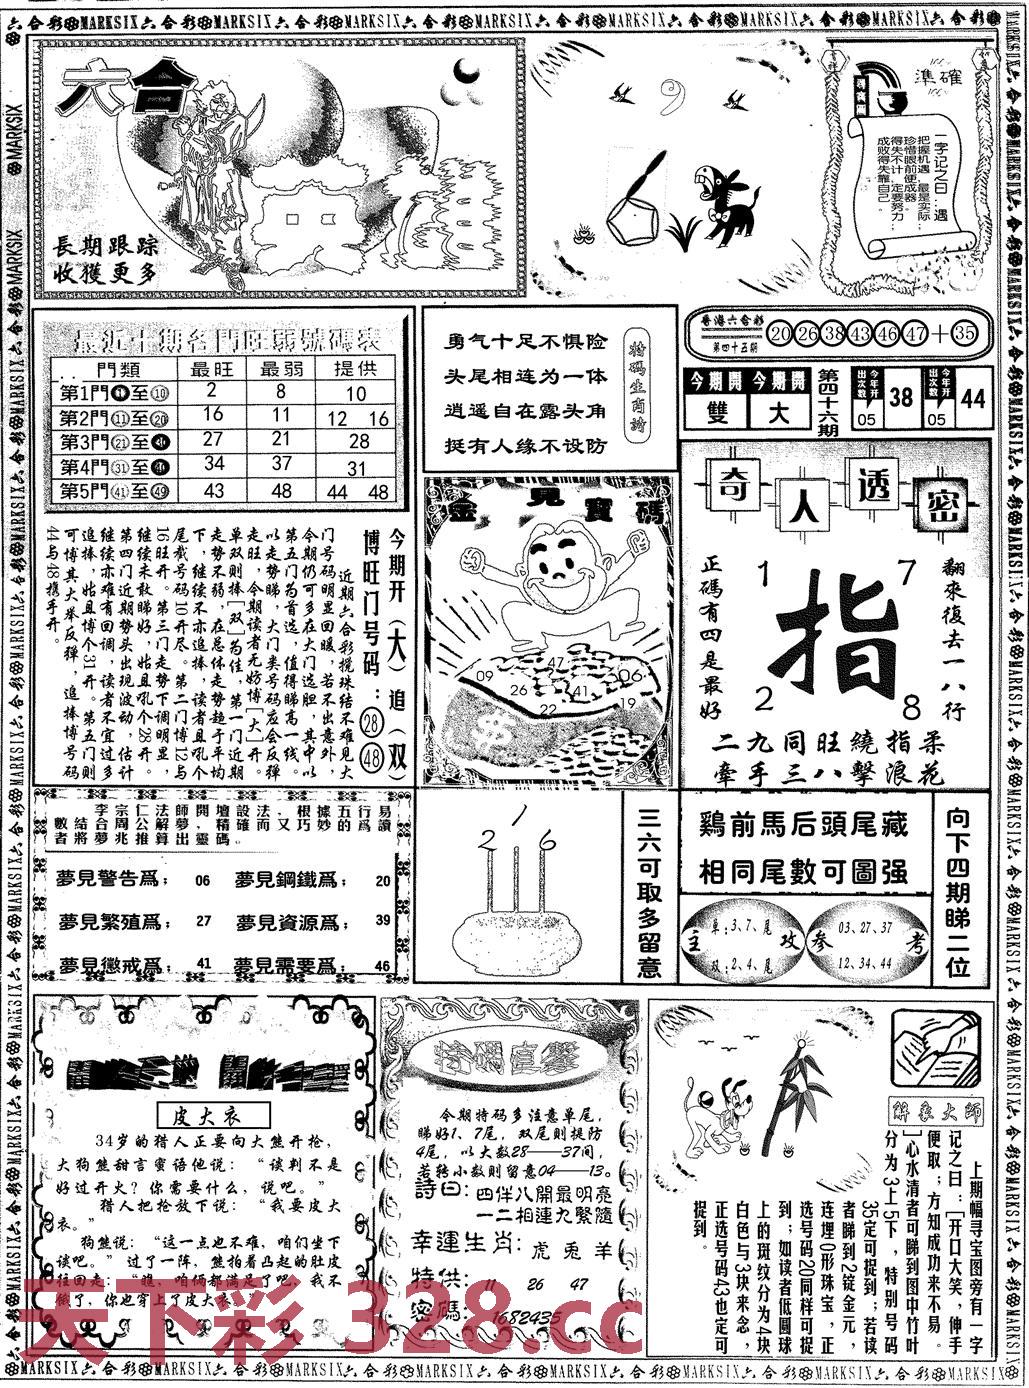 六合彩MARKSIX六合彩MARKSIX六合彩MARKSIX六合彩MARKSIX六合彩MARKSIX六合彩MARKSIX
六合
長期跟踪
收獲更多
9
準確
一字记之曰：遇
把握机遇，最是实际
珍惜眼前便成器。
得失不计，定要努力，
成败得失靠自己。
最近十期各門旺弱號碼表
門類 最旺 最弱 提供
第1門①至⑩ 2 8 10
第2門⑪至⑳ 16 11 12 16
第3門㉑至 27 21 28
第4門㉛至 34 37 31
第5門㊶至㊾ 43 48 44 48
勇气十足不惧险
头尾相连为一体
逍遥自在露头角
挺有人缘不设防
特码生肖詩
香港六合彩
第四十五期
20 26 38 43 46 47 + 35
今期開 今期開
雙 大
第四十六期
今年开出次数 05 38
今年开出次数 05 44
今期开（大）追（双）
博旺门号码：㉘㊽
近期六合彩搅珠结不难见大
门号码明显回暖，若不出意外，
今期仍可多在大门选胆，其中以
第五门为首选，值得睇高一线。
以走势睇，大门类号码应会反弹
走旺，今期读者无妨博［大］开。
单双则捧［双］为佳，第一门近期
走势不弱，在总体走势趋于平均
下，继续不亦追捧，读者且吼个
尾截号码10开尽。第二门博12与
16旺开。第三门走势下调明显，
继续未敢睇好，姑且吼个28开。
第四门近期势头出现波动，估计
继续亦难有回调，读者不宜过多
追捧，姑且博个31开。第五门则
可博其大举反弹，追捧博号码
44与48携手开。
金兒寶碼
47
09
26
41
06
22
19
奇人透密
正碼有四是最好
翻來復去一八行
1
7
指
2
8
二九同旺繞指柔
牽手三八擊浪花
李宗仁法師開壇設法，根據五行易
數結合周公解夢，精確而又巧妙的爲讀
者將夢兆推算出靈碼。
夢見警告爲； 06 夢見鋼鐵爲； 20
夢見繁殖爲； 27 夢見資源爲； 39
夢見懲戒爲； 41 夢見需要爲； 46
1
2 6
三六可取多留意
鷄前馬后頭尾藏
相同尾數可圖强
主攻
单：3、7、尾
双：2、4、尾
参考
03、27、37
12、34、44
向下四期睇二位
皮大衣
34岁的猎人正要向大熊开枪，
大狗熊甜言蜜语他说：“谈判不是
好过开火？你需要什么，说吧。”
猎人把枪放下说：“我要皮大
衣。”
狗熊说：“这一点也不难，咱们坐下
谈吧。”过了一阵，熊拍着凸起的肚皮
往回走：“瞧，咱俩都满足了吧！我不
饿了，你也穿上了皮大衣。”
特碼直擊
今期特码多注意单尾，
睇好1、7尾，双尾则提防
4尾，以大数28——37间，
若转小数则留意04——13。
詩曰：四伴八開最明亮
一二相連九緊隨
幸運生肖：虎 兎 羊
特供：11 26 47
密碼：1682435
解象大師
上期幅寻宝图旁有一字
记之曰：［开口大笑，伸手
便取；方知成功来不易。
］心水清者可睇到图中竹叶
分为3上5下，特别号码
35定可捉到；若读
者睇到2锭金元，
连埋0形珠宝，正
选号码20同样可捉
到；如读者低圆球
上的斑纹分为4块
白色与3块米念，
正选号码43也定可
捉到。
天下彩328.cc
六合彩MARKSIX六合彩MARKSIX六合彩MARKSIX六合彩MARKSIX六合彩MARKSIX六合彩MARKSIX